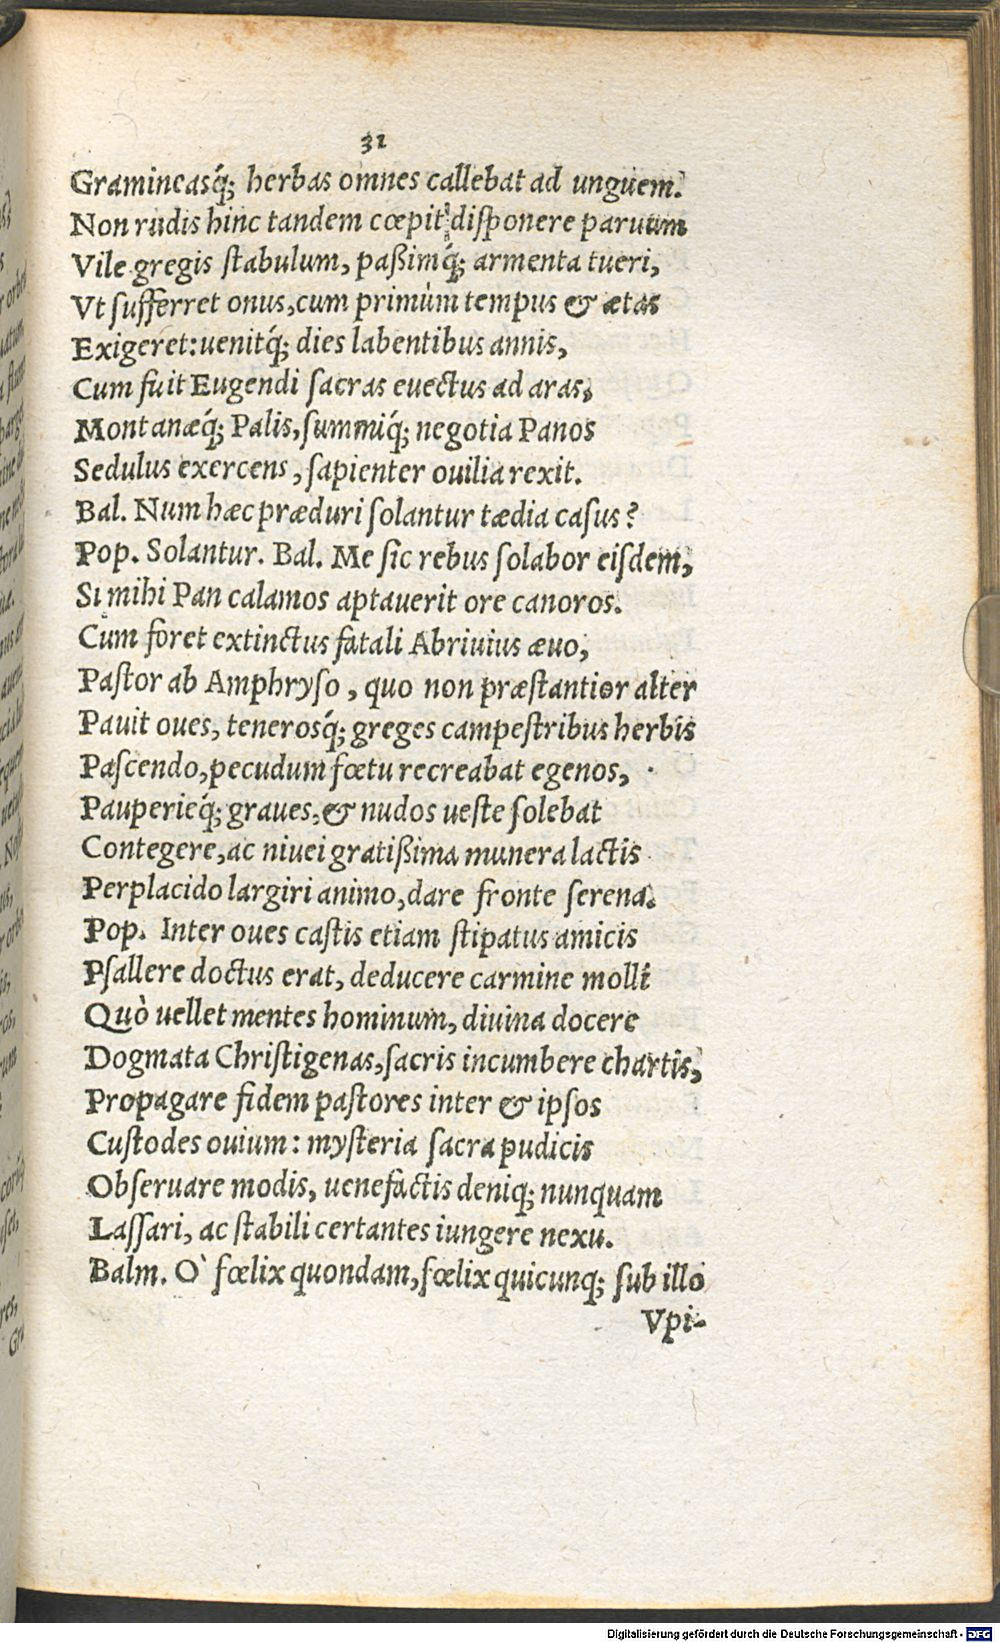 31
Gramineasq́; herbas omnes callebat ad unguem.
Non rudis hinc tandem cœpit disponere paruum
Vile gregis stabulum, paßimq́; armenta tueri,
Vt sufferret onus, cum primùm tempus & ætas
Exigeret: uenitq́; dies labentibus annis,
Cum fuit Eugendi sacras euectus ad aras,
Montanæq́; Palis, summiq́; negotia Panos
Sedulus exercens, sapienter ouilia rexit.
Bal. Num hæc præduri solantur tædia casus?
Pop. Solantur. Bal. Me sic rebus solabor eisdem,
Si mihi Pan calamos aptauerit ore canoros.
Cum foret extinctus fatali Abriuius æuo,
Pastor ab Amphryso, quo non præstantior alter
Pauit oues, tenerosq́; greges campestribus herbis
Pascendo, pecudum fœtu recreabat egenos,
Pauperieq́; graues, & nudos ueste solebat
Contegere, ac niuei gratißima munera lactis
Perplacido largiri animo, dare fronte serena.
Pop. Inter oues castis etiam stipatus amicis
Psallere doctus erat, deducere carmine molli
Quò uellet mentes hominum, diuina docere
Dogmata Christigenas, sacris incumbere chartis,
Propagare fidem pastores inter & ipsos
Custodes ouium: mysteria sacra pudicis
Obseruare modis, uenefactis deniq; nunquam
Lassari, ac stabili certantes iungere nexu.
Balm. O` fœlix quondam, fœlix quicunq; sub illo
Vpi-
Digitalisierung gefördert durch die Deutsche Forschungsgemeinschaft - DFG